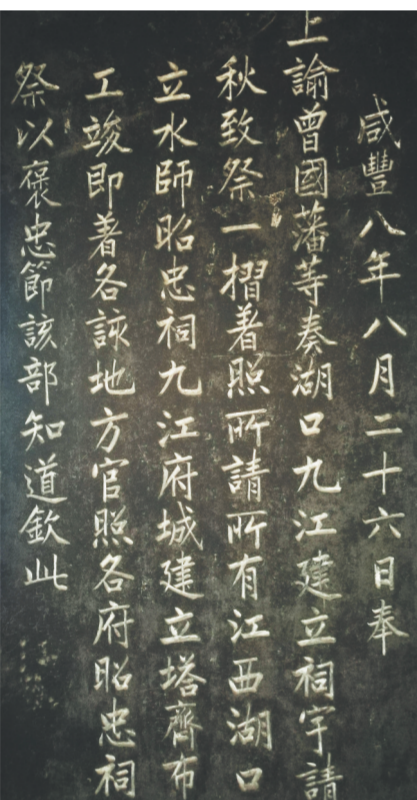 咸豐八年八月二十六日奉
上諭曾國藩等奏湖口九江建立祠宇請
秋致祭一摺著照所請所有江西湖口
立水師昭忠祠九江府城建立塔齊布
工竣即著各該地方官照各府昭忠祠
祭以褒忠節該部知道欽此